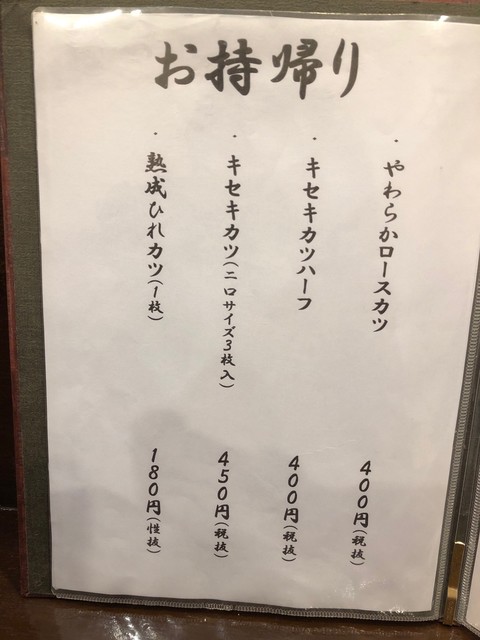 お持帰り
・やわらかロースカツ 400円(税抜)
・キセキカツハーフ 400円(税抜)
・キセキカツ(二口サイズ3枚入) 450円(税抜)
・熟成ひれカツ(1枚) 180円(性抜)